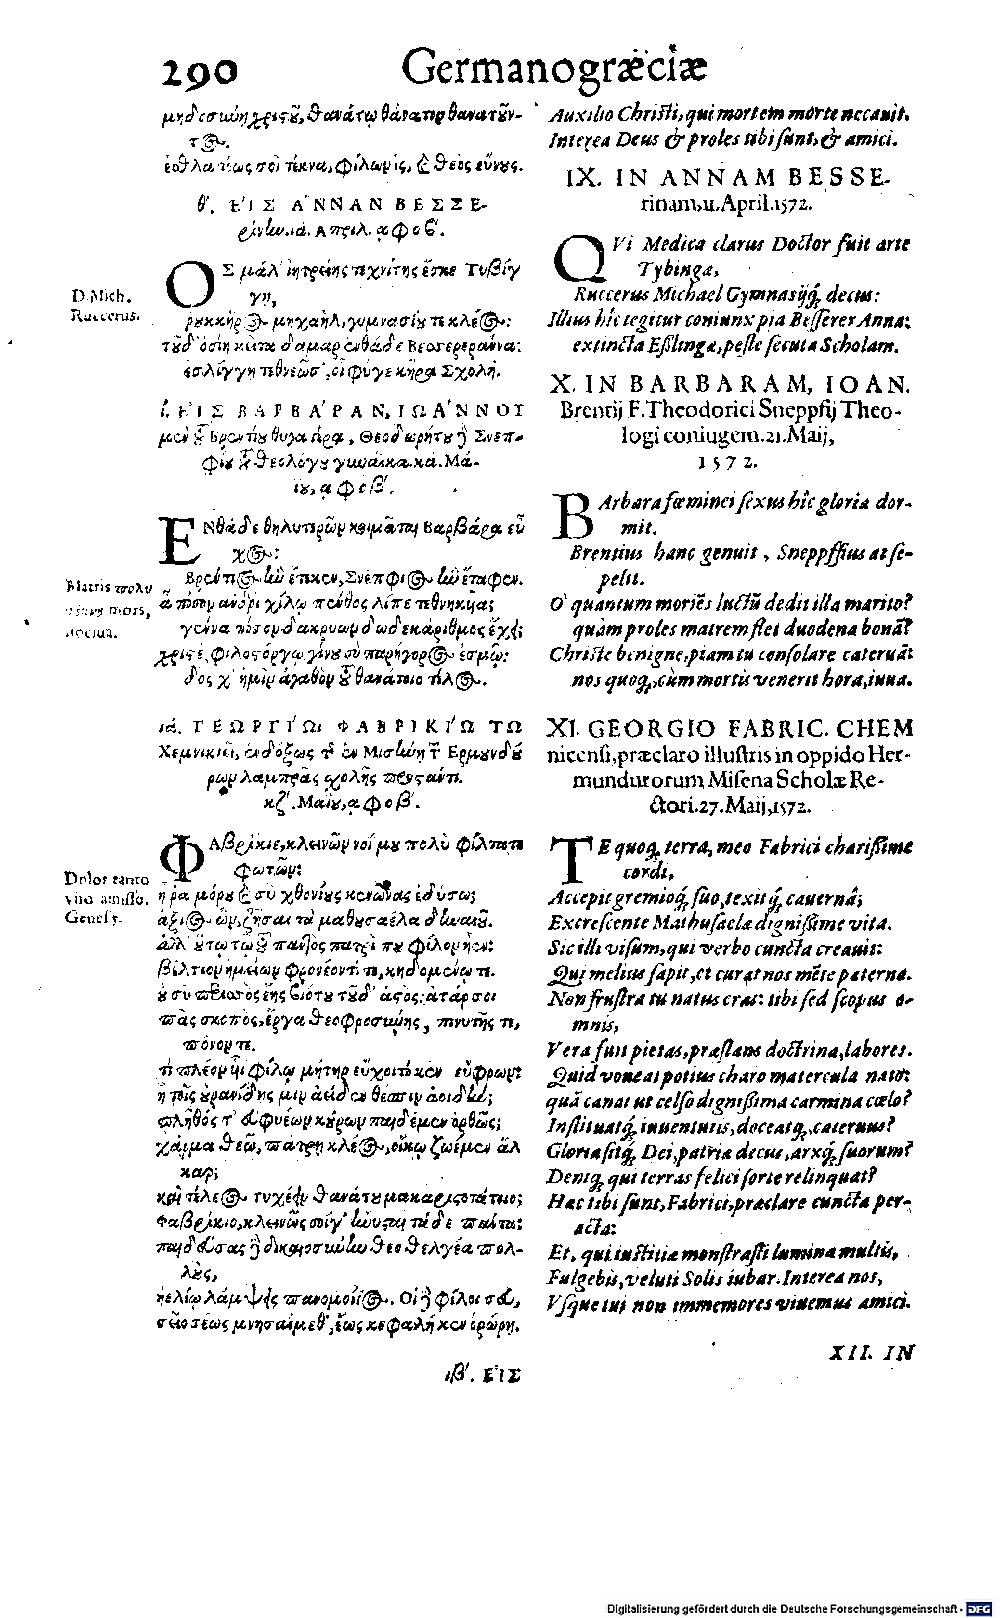 290 Germanogræciæ
μηδεσύνη χριστοῦ, θανάτῳ θάνατον θανατοῦν-
τος.
ἐσθλὰ τέως σοι τέκνα, φίλων ἲς, καὶ θεὸς εὔνους.
θʹ. ΕἸΣ ἌΝΝΑΝ ΒΕΣΣΕ-
ρίνην. ια. Απριλ. αφοβʹ.
ΟΣ μάλ' ἰητρείης τεχνίτης ἔσκε Τυβίγ
γῃ,
ῥουκκῆρος μηχαὴλ, γυμνασίου τε κλέος:
τοῦδ' ὁσίη κεῖται δάμαρ ἐνθάδε Βεσσερεράννα:
ἐσλίγγῃ τεθνεῶσ', οἷ φύγε κῆρα Σχολή.
ί. ΕἸΣ ΒΑΡΒΆΡΑΝ, ΙΩΆΝΝΟΥ
μὲν τοῦ Βρεντίου θυγατέρα, Θεοδωρήτου δὲ Σνεπ-
φίου τοῦ θεολόγου γυναῖκα. κα. Μά-
ϊου, αφοβʹ.
ΕΝθάδε θηλυτερῶν κοιμᾶται Βαρβάρα εὖ
χος:
Βρέντιος ἣν ἔτικεν, Σνέπφιος ἣν ἔταφεν.
ἆ πόσον ἀνδρὶ φίλῳ πένθος λίπε τεθνηκυῖα;
γέννα πόσον δακρύων δωδεκάριθμος ἔχει;
χριστέ, φίλος ὀργῶ γίνου σὺ παρήγορος ἑσμῷ:
δὸς χ' ἡμῖν ἀγαθὸν τοῦ θανάτοιο τέλος.
ιά. ΓΕΩΡΓΊΩι ΦΑΒΡΙΚΊΩ ΤΩ
Χεμνικιεῖ, ἐνδόξως τῆς ἐν Μισήνῃ τῶν Ερμουνδού
ρων λαμπρᾶς σχολῆς προεστῶτι.
κζʹ. Μαΐου, αφοβʹ.
ΦΑβρίκιε, κλεινῶν νοΐ μου πολὺ φίλτατε
φωτῶν:
ἦ ῥα μόρου καὶ σὺ χθονίους κευθμῶνας ἐδύσω;
ἄξιος ὢν, ζῆσαι τὰ μαθουσαέλα δίκαιον.
ἀλλ' οὕτω τῷ τοῦ παντὸς πατρί που φίλον ἦεν:
βέλτιον ἡμείων φρονέοντί τε, κηδομένῳ τε.
οὐ σὺ περισσὸς ἔης βιότου τοῦδ' ἄστος: ἀτάρ σοι
πᾶς σκοπὸς, ἔργα θεοφροσύνης, πινυτῆς τε,
πόνον τε.
τί πλέον υἱεῖ φίλῳ μήτηρ εὔχοιτό κεν εὔφρων:
ἢ τοῖς οὐρανίδῃς μιν ἀείδεν θέσπιν ἀοιδήν;
πλῆθός τ' εὐφυέων κούρων παιδέμεν ὀρθῶς;
χάρμα θεῷ, πάτρῃ κλέος, οἴκῳ ζωέμεν ἄλ
καρ;
καὶ τέλεος τυχέειν θανάτου μακαριστοτάτοιο;
Φαβρίκιε, κλεινῶς σοίγ' ἤνυσται τάδε πάντα:
παιδεύσας δὲ δικαιοσύνην θεοθελγέα πολ-
λοὺς,
ἠελίῳ λάμψεις πανομοίϊος. Οἱ δὲ φίλοι σεῦ,
σεῖο τέως μνησαίμεθ', ἕως κεφαλή κεν ὀρώρῃ.
ιβʹ. ΕἸΣ
D. Mich.
Ruccerus.
Matris
mors,
Dolor tanto
viro amisso.
Genes 5.
Auxilio Christi, qui mortem morte necauit.
Interea Deus & proles tibi sunt, & amici.
IX. IN ANNAM BESSE-
rinam, 11. April. 1572.
QVi Medica clarus Doctor fuit arte
Tybingæ,
Ruccerus Michael Gymnasijq́; decus:
Illius hîc tegitur coniunx pia Besserer Anna:
extincta Eßlingæ, peste secuta Scholam.
X. IN BARBARAM, IOAN.
Brentij F. Theodorici Sneppfij Theo-
logi coniugem. 21. Maij,
1572.
BArbara fœminei sexus hîc gloria dor-
mit.
Brentius hanc genuit, Sneppffius at se-
pelit.
O quantum moriẽs luctũ dedit illa marito?
quàm proles matrem flet duodena bonã?
Christe benigne, piam tu consolare cateruã:
nos quoq;, cùm mortis venerit hora, iuua.
XI. GEORGIO FABRIC. CHEM
nicensi, præclaro illustris in oppido Her-
mundurorum Misena Scholæ Re-
ctori. 27. Maij, 1572.
TE quoq; terra, meo Fabrici charißime
cordi,
Accepit gremioq́; suo, texitq́; cauerna;
Excrescente Mathusaelæ dignißime vita.
Sic illi visum, qui verbo cuncta creauit:
Qui melius sapit, et curat nos mẽte paterna.
Non frustra tu natus eras: tibi sed scopus o-
mnis,
Vera fuit pietas, præstans doctrina, labores.
Quid voueat potius charo matercula nato:
quã canat ut celso dignißima carmina cœlo?
Instituatq́; iuuentutis, doceatq;, cateruas?
Gloria sitq́; Dei, patriæ decus, arxq́; suorum?
Deniq; qui terras felici sorte relinquat?
Hac tibi sunt, Fabrici, præclare cuncta per-
acta:
Et, qui iustitiæ monstrasti lumina multis,
Fulgebis, veluti Solis iubar. Interea nos,
Vsque tui non immemores viuemus amici.
XII. IN
Digitalisierung gefördert durch die Deutsche Forschungsgemeinschaft - DFG